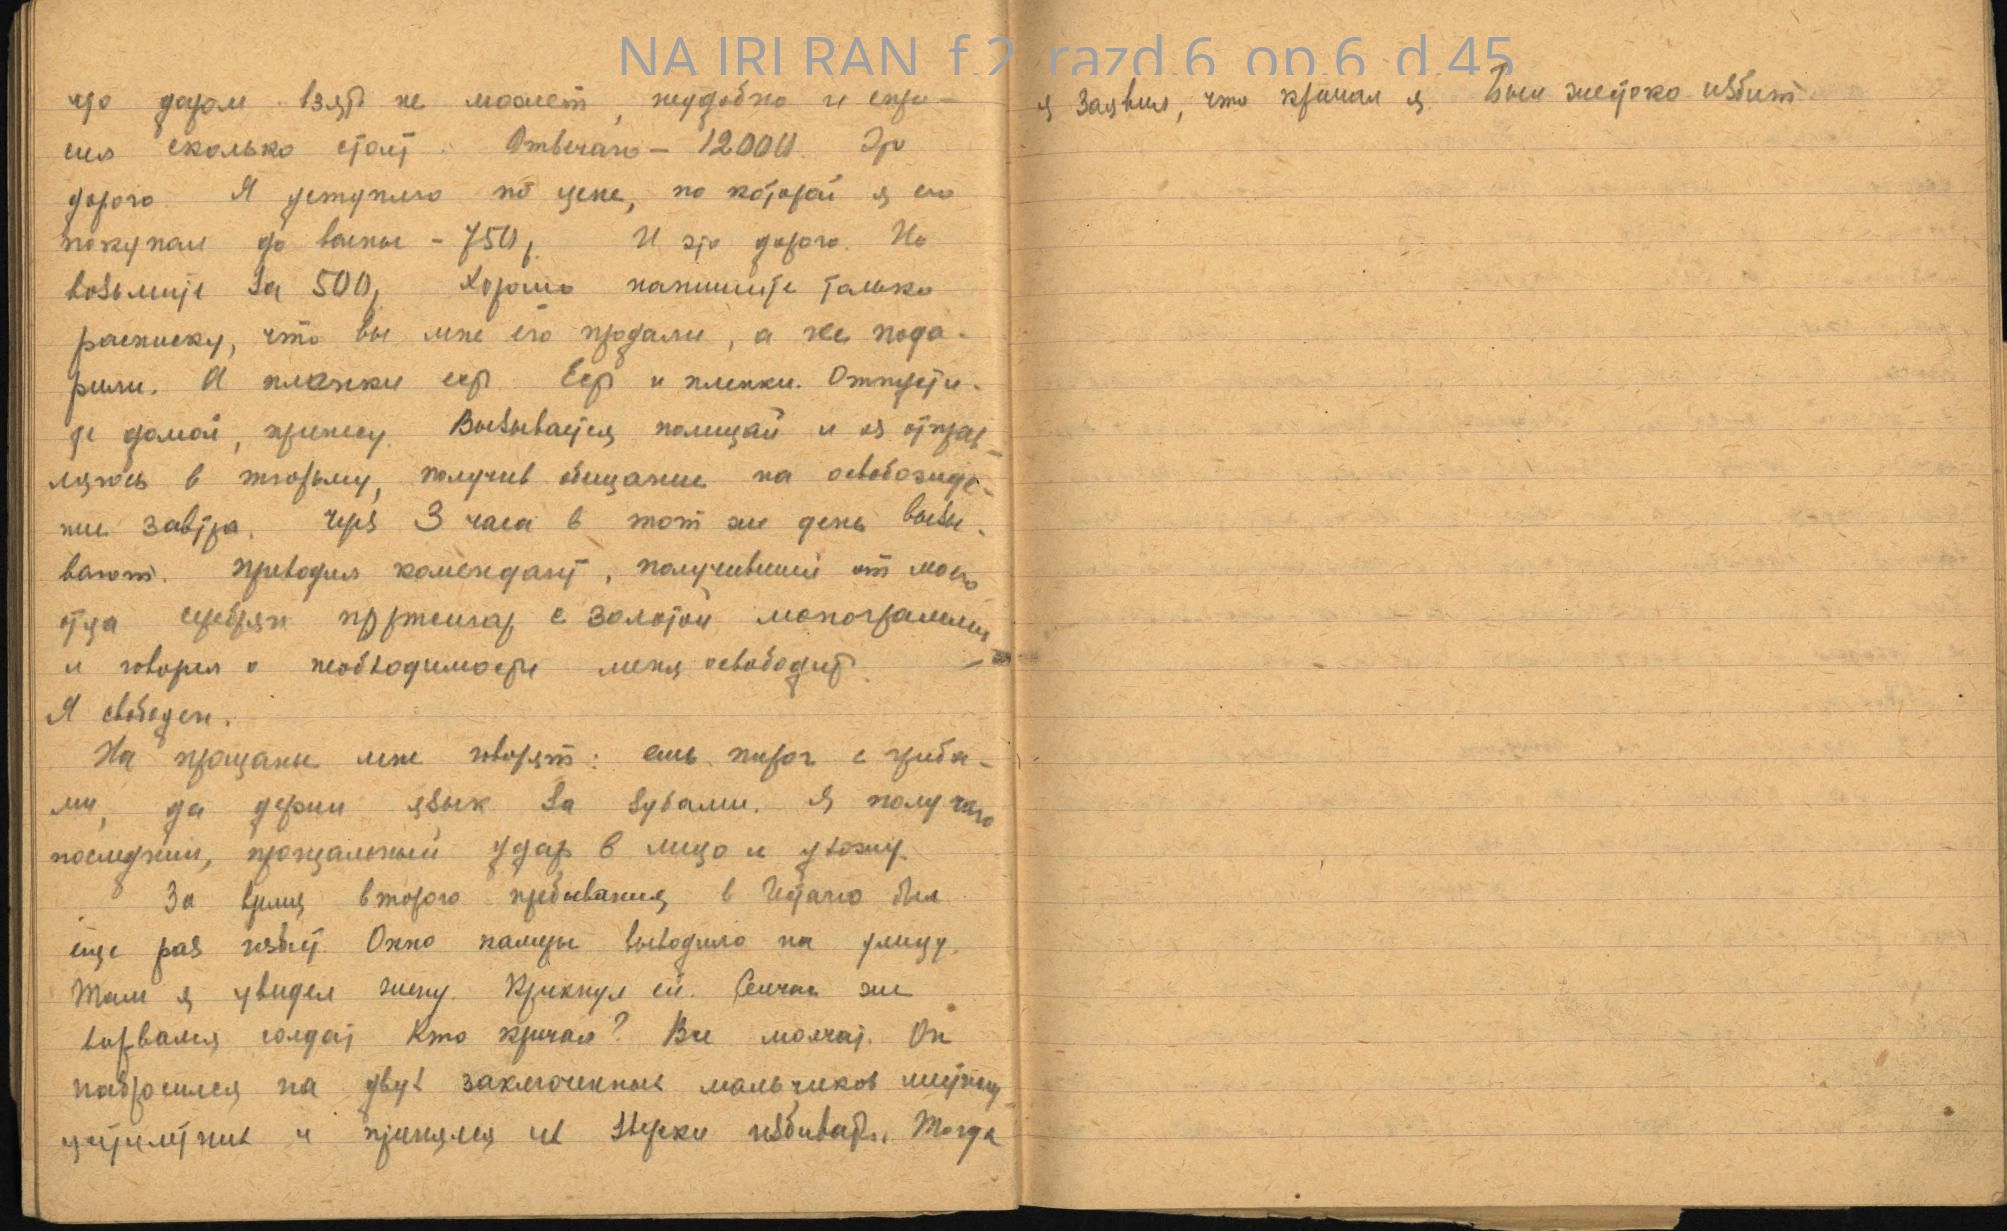 NA IRI RAN f.2 razd.6 op.6 d.45
что даром взять не может, неудобно и спро-
сил сколько стоит. Отвечаю - 12000. Это
дорого. Я уступлю по цене, по которой я его
покупал до войны - 750р. И это дорого. Но
возьмите за 500р. Хорошо напишите только
расписку, что вы мне его продали, а не пода-
рили. А пленки есть. Есть и пленки. Отпусти-
те домой, принесу. Вызывается полицай и я отправ-
ляюсь в тюрьму, получив обещание на освобожде-
ние завтра. Через 3 часа в тот же день вызы-
вают. Приходил комендант, получивший от моего
отца серебрян портсигар с золотой монограммой
и говорил о необходимости меня освободить.
Я свободен.
На прощанье мне говорят: ешь пирог с гриба-
ми, да держи язык за зубами. Я получаю
последний, прощальный удар в лицо и ухожу.
За время второго пребывания в был
еще раз избит. Окно камеры выходило на улицу.
Там я увидел жену. Крикнул ей. Сейчас же
ворвался солдат Кто кричал? Все молчат. Он
набросился на двух заключенных мальчиков
и принялся их зверски избивать. Тогда
я заявил, что кричал я. Был жестоко избит.